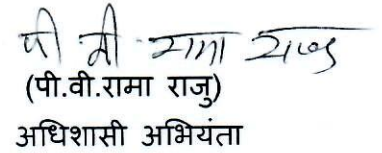 पी वी रामा राजु
(पी.वी.रामा राजु)
अधिशासी अभियंता